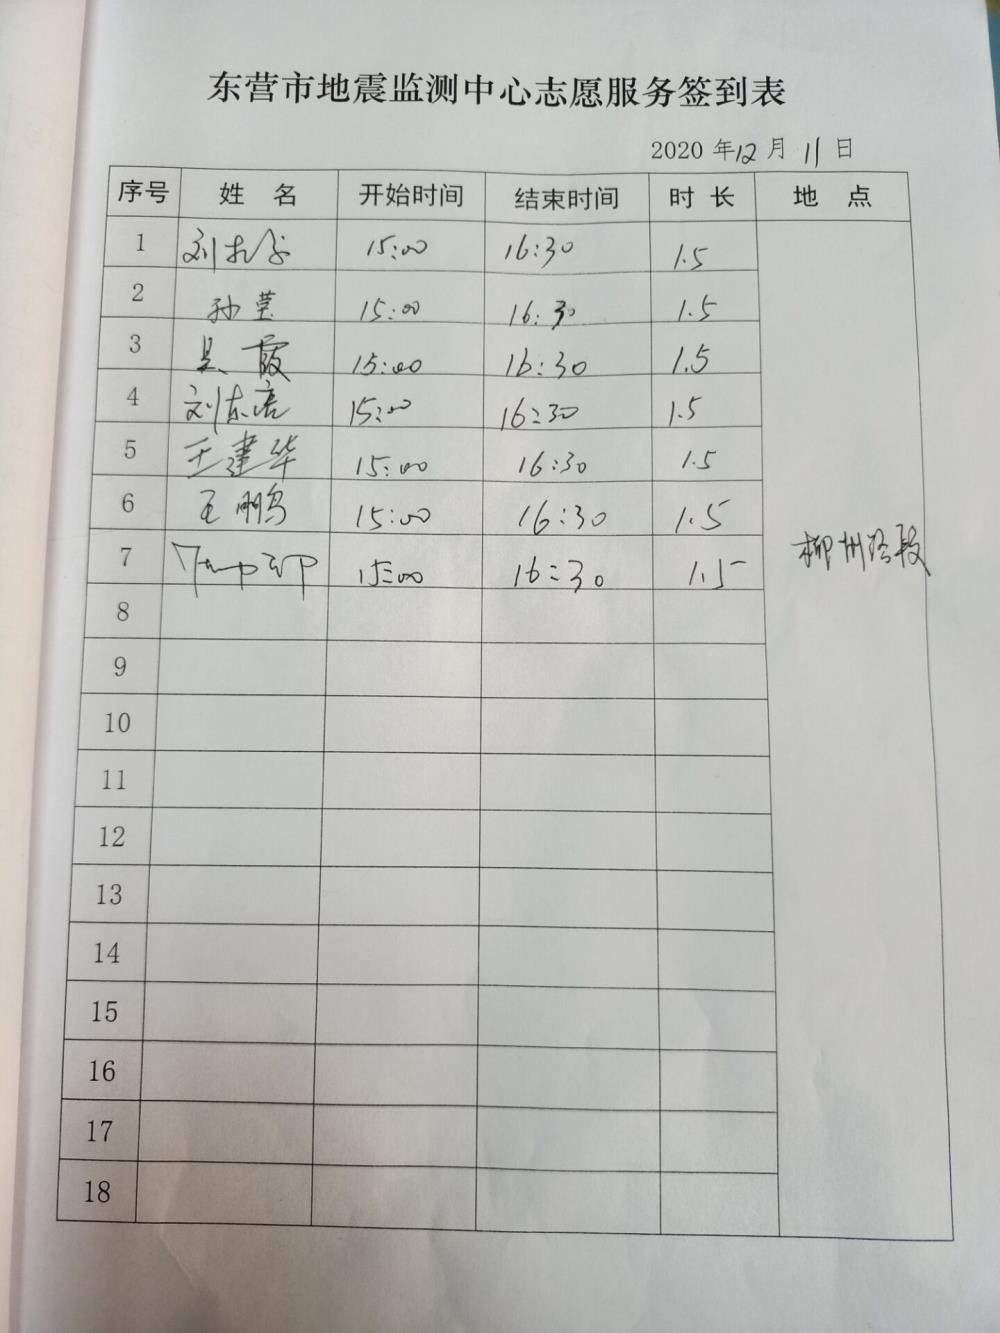 东营市地震监测中心志愿服务签到表
2020 年 12 月 11 日
序号 姓 名 开始时间 结束时间 时 长 地 点
1 15:00 16:30 1.5
2 孙莹 15:00 16:30 1.5
3 吴霞 15:00 16:30 1.5
4 刘东 15:00 16:30 1.5
5 王建华 15:00 16:30 1.5
6 王鹏 15:00 16:30 1.5
柳州路段
7 15:00 16:30 1.5
8
9
10
11
12
13
14
15
16
17
18